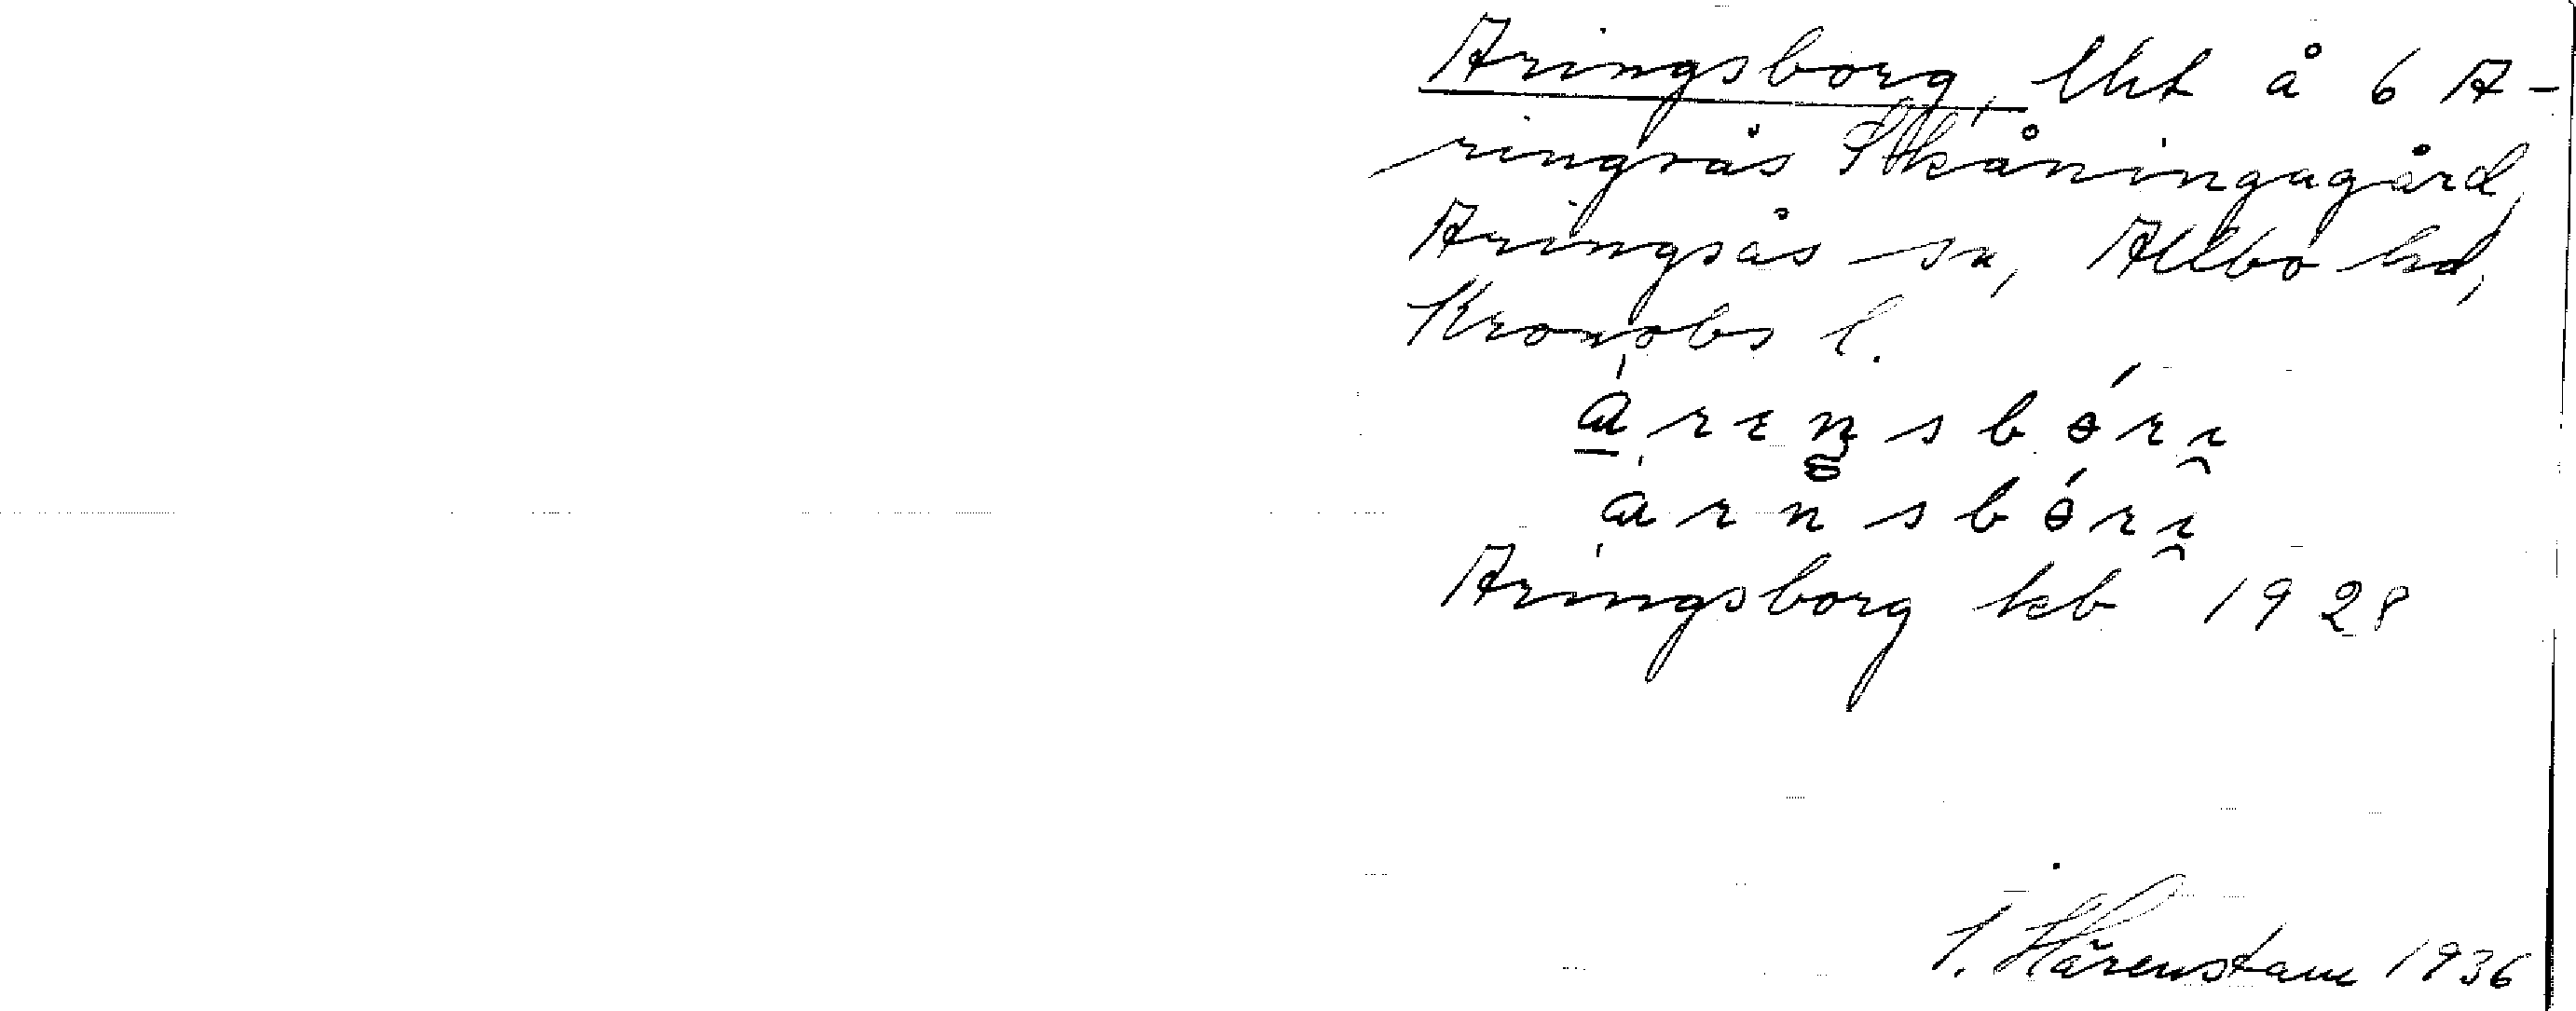 Aringsborg, lht å 6 A-
ringsås Skåningagård,
Aringsås sn, Allbo hd,
Kronobs l.
Aringsborg kb 1928
I. Härenstam 1936